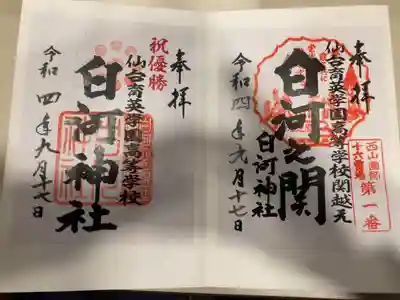 奉拝
仙台育英学園高等学校関越え
白河之関
白河神社
令和四年九月十七日
西山圓照
第一番
奉拝
祝優勝
仙台育英学園高等学校
白河神社
令和四年九月十七日